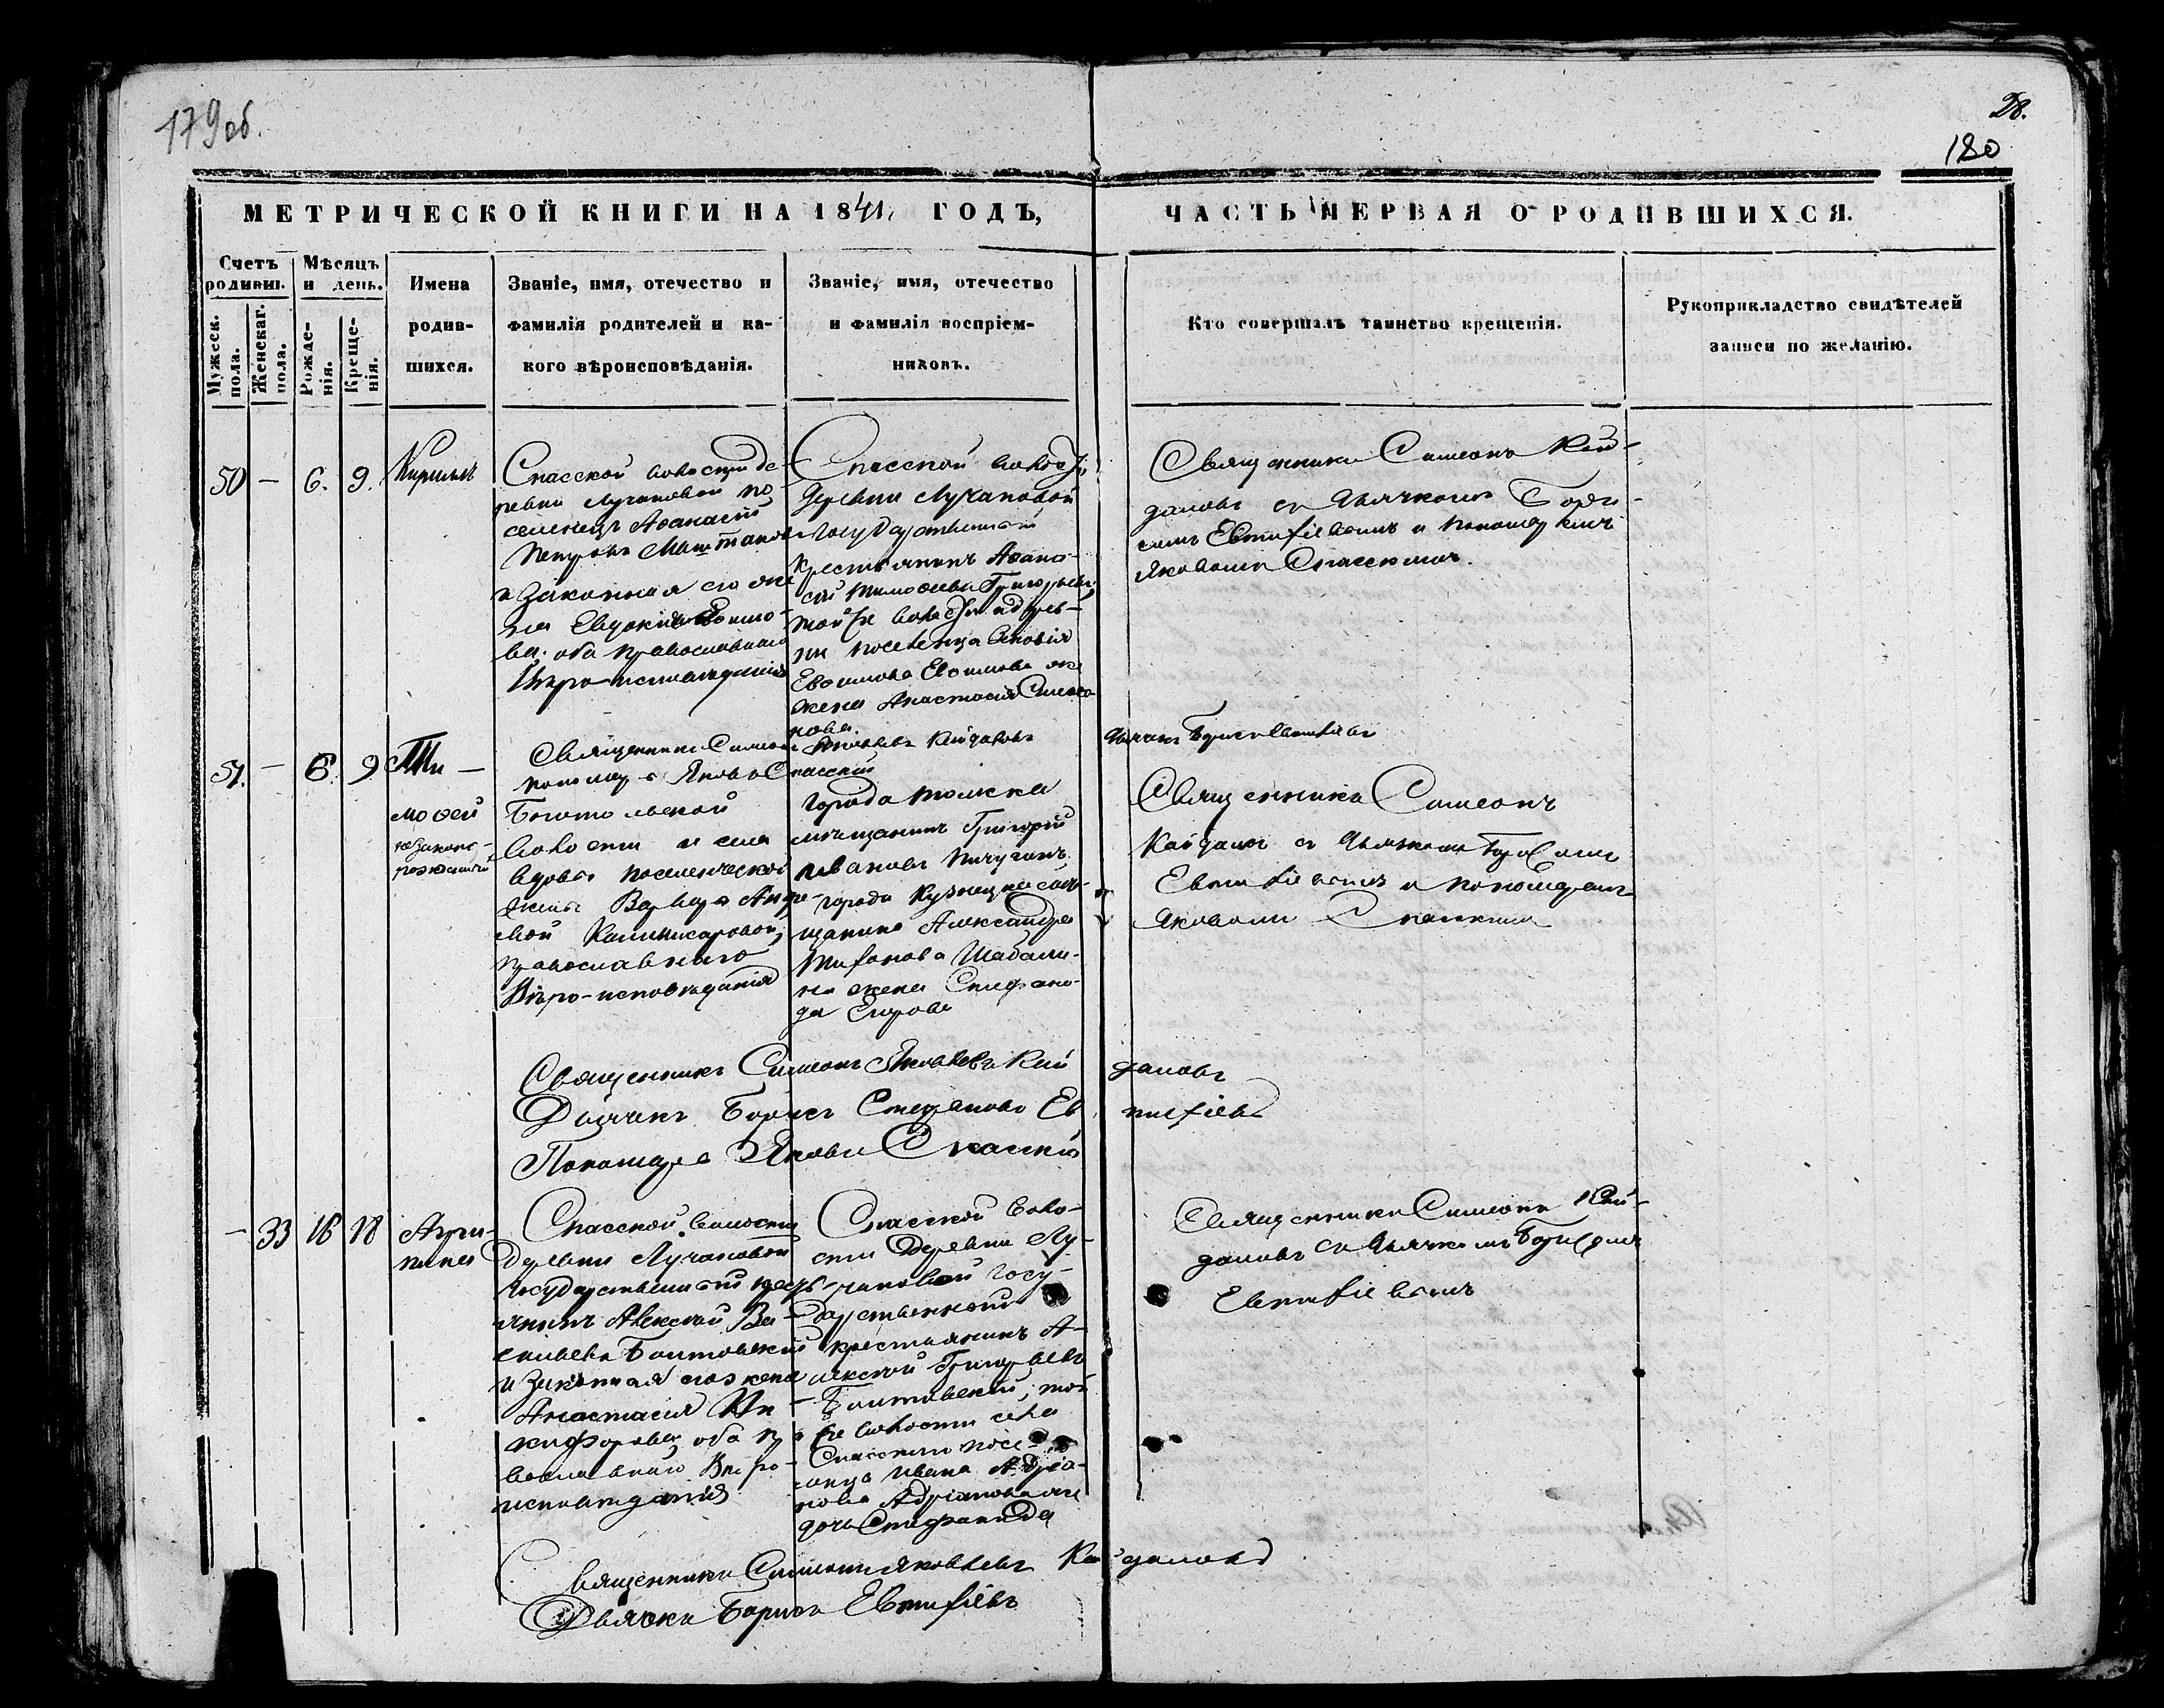 179об.
28.
180
МЕТРИЧЕСКОЙ КНИГИ НА 1841 ГОДЪ,
ЧАСТЬ ПЕРВАЯ О РОДИВШИХСЯ.
Счетъ родивш.
Мужеск. пола.
Женскаг. пола.
Мѣсяцъ и день.
Рожденія.
Крещенія.
Имена
родив-
шихся.
Званіе, имя, отечество и
фамилія родителей и ка-
кого вѣроисповѣданія.
Званіе, имя, отечество
и фамилія воспріем-
никовъ.
Кто совершалъ таинство крещенія.
Рукоприкладство свидѣтелей
записи по желанію.
50 — 6. 9. Кириллъ
Спасской волости де-
ревни Лучановой по-
селенецъ Афанасій
Петровъ
и законная его же-
на Евдокія
ва, оба православнаго
Вѣро-исповѣданія
Спасской волости
деревни Лучановой
Государственный
крестьянинъ Афана-
сій Тимофеевъ Григорьевъ,
той же волости и дерев-
ни поселенца
Евфимова жена
Анастасія Симео-
нова.
Священникъ Симеонъ Кай-
дановъ съ Дьячкомъ Бори-
сомъ Евтифіевымъ и пономаремъ
Яковомъ Спасскимъ.
Священникъ Симеонъ Яковлевъ Кайдановъ
Дьячекъ Борисъ Евтифіевъ
пономарь Яковъ Спасскій
51. — 6. 9 Ти-
мофей
незаконо-
рожденный
Боготольской
волости и села
вдова поселенческой
жены Варвара Андре-
евой
православнаго
Вѣро-исповѣданія
Города Томска
мѣщанинъ Григорій
Ивановъ Пичугинъ,
города Кузнецка мѣ-
щанина Александра
Тихонова Шабали-
на жена Стефани-
да Егорова
Священникъ Симеонъ
Кайдановъ съ Дьячкомъ Борисомъ
Евтифіевымъ и пономаремъ
Яковомъ Спасскимъ
Священникъ Симеонъ Яковлевъ Кайдановъ
Дьячекъ Борисъ Стефановъ Евтифіевъ
Пономарь Яковъ Спасскій
— 33 16 18 Агри-
пина
Спасской волости
Деревни Лучановой
Государственный кресть-
янинъ Алексѣй Ва-
сильевъ Болтовскій
и законная его жена
Анастасія Ни-
кифорова, оба пра-
вославнаго Вѣро-
исповѣданія
Спасской воло-
сти Деревни Лу-
чановой Госу-
дарственной
крестьянинъ А-
лексѣй Григорьевъ
Болтовскій, той
же волости села
Спасскаго посе-
ленца Ивана Адріа-
нова Адріанова
дочь Стефанида
Священникъ Симеонъ Кай-
дановъ съ Дьячкомъ Борисомъ
Евтифіевымъ
Священникъ Симеонъ Яковлевъ Кайдановъ
Дьячекъ Борисъ Евтифіевъ